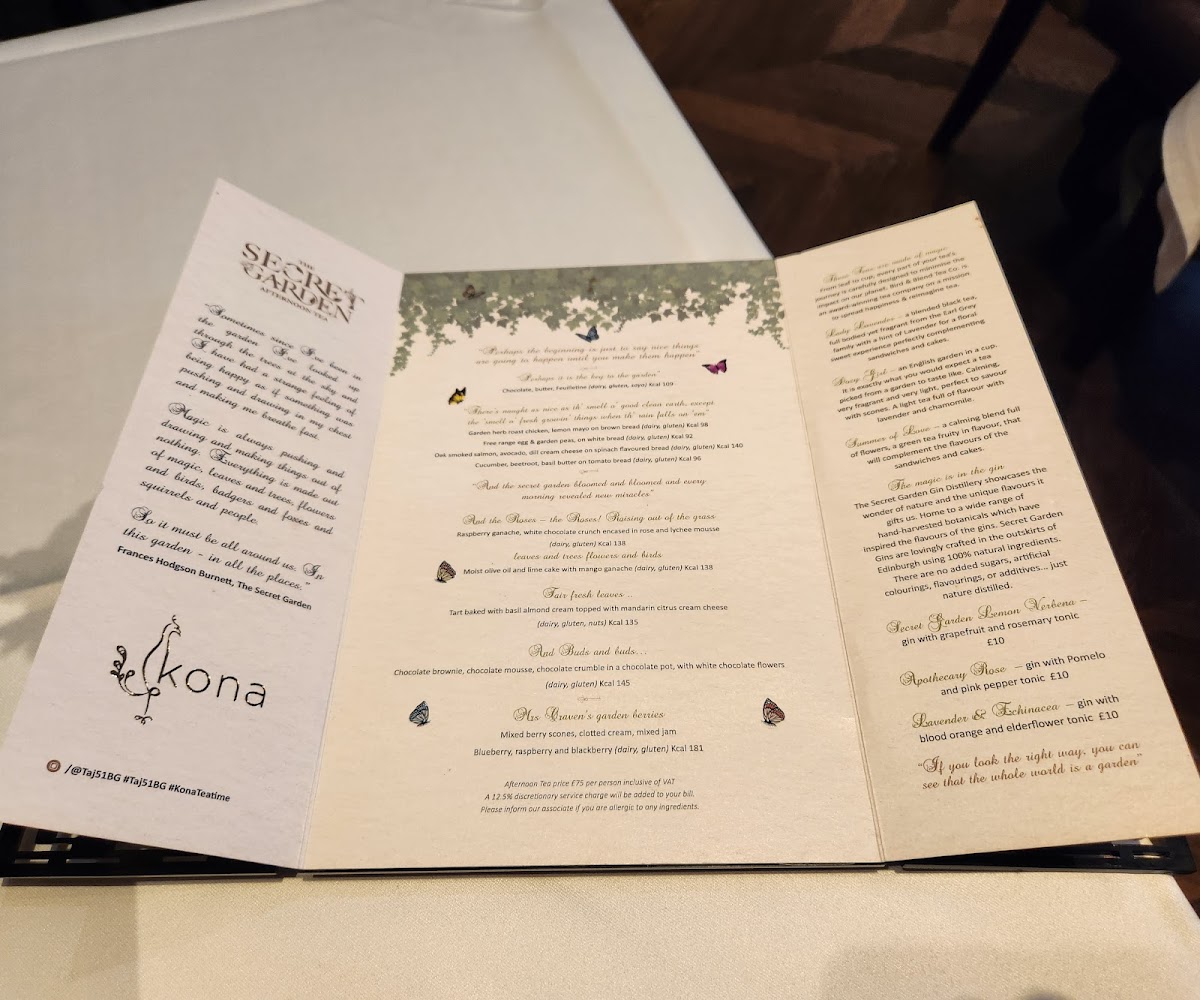 THE
SECRET
GARDEN
AFTERNOON TEA
"Sometimes since I've been in
the garden I've looked up
through the trees at the sky and
I have had a strange feeling of
being happy as if something was
pushing and drawing in my chest
and making me breathe fast.
Magic is always pushing and
drawing and making things out of
nothing. Everything is made out
of magic, leaves and trees, flowers
and birds, badgers and foxes and
squirrels and people.
So it must be all around us. In
this garden - in all the places."
Frances Hodgson Burnett, The Secret Garden
kona
/@Taj51BG #Taj51BG #KonaTeatime
"Perhaps the beginning is just to say nice things
are going to happen until you make them happen"
"Perhaps it is the key to the garden"
Chocolate, butter, Feuilletine (dairy, gluten, soya) Kcal 109
"There's naught as nice as th' smell o' good clean earth, except
the 'smell o' fresh growin' things when th' rain falls on 'em"
Garden herb roast chicken, lemon mayo on brown bread (dairy, gluten) Kcal 98
Free range egg & garden peas, on white bread (dairy, gluten) Kcal 92
Oak smoked salmon, avocado, dill cream cheese on spinach flavoured bread (dairy, gluten) Kcal 140
Cucumber, beetroot, basil butter on tomato bread (dairy, gluten) Kcal 96
"And the secret garden bloomed and bloomed and every
morning revealed new miracles"
And the Roses – the Roses! Raising out of the grass
Raspberry ganache, white chocolate crunch encased in rose and lychee mousse
(dairy, gluten) Kcal 138
leaves and trees flowers and birds
Moist olive oil and lime cake with mango ganache (dairy, gluten) Kcal 138
Fair fresh leaves ..
Tart baked with basil almond cream topped with mandarin citrus cream cheese
(dairy, gluten, nuts) Kcal 135
And Buds and buds...
Chocolate brownie, chocolate mousse, chocolate crumble in a chocolate pot, with white chocolate flowers
(dairy, gluten) Kcal 145
Mrs Craven's garden berries
Mixed berry scones, clotted cream, mixed jam
Blueberry, raspberry and blackberry (dairy, gluten) Kcal 181
Afternoon Tea price £75 per person inclusive of VAT
A 12.5% discretionary service charge will be added to your bill.
Please inform our associate if you are allergic to any ingredients.
These Teas are made of magic
From leaf to cup, every part of your tea's
journey is carefully designed to minimise the
impact on our planet. Bird & Blend Tea Co. is
an award-winning tea company on a mission
to spread happiness & reimagine tea.
Lady Lavender – a blended black tea,
full bodied yet fragrant from the Earl Grey
family with a hint of Lavender for a floral
sweet experience perfectly complementing
sandwiches and cakes.
– an English garden in a cup.
It is exactly what you would expect a tea
picked from a garden to taste like. Calming,
very fragrant and very light, perfect to savour
with scones. A light tea full of flavour with
lavender and chamomile.
Summer of Love – a calming blend full
of flowers, a green tea fruity in flavour, that
will complement the flavours of the
sandwiches and cakes.
The magic is in the gin
The Secret Garden Gin Distillery showcases the
wonder of nature and the unique flavours it
gifts us. Home to a wide range of
hand-harvested botanicals which have
inspired the flavours of the gins. Secret Garden
Gins are lovingly crafted in the outskirts of
Edinburgh using 100% natural ingredients.
There are no added sugars, artificial
colourings, flavourings, or additives... just
nature distilled.
Secret Garden Lemon Verbena –
gin with grapefruit and rosemary tonic
£10
Apothecary Rose – gin with Pomelo
and pink pepper tonic £10
Lavender & Echinacea – gin with
blood orange and elderflower tonic £10
"If you look the right way, you can
see that the whole world is a garden"